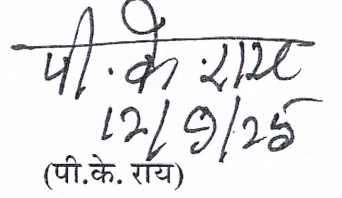 पी.के.राय
12/9/25
(पी.के. राय)